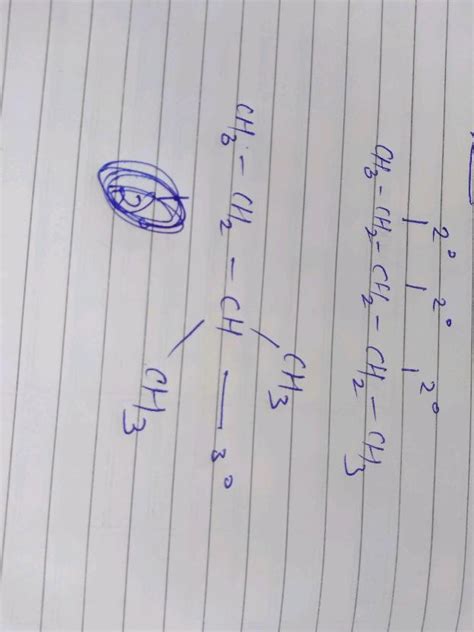 2° 2° 2°
CH3-CH2-CH2-CH2-CH3
CH3
CH3-CH2-CH-3°
CH3